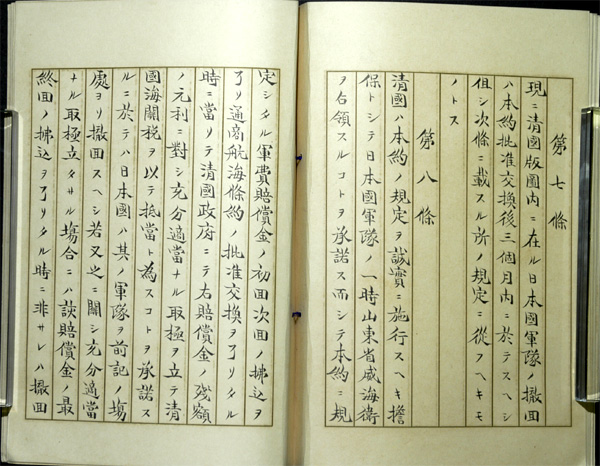 第七條
現ニ清國版圖内ニ在ル日本國軍隊ノ撤囬
ハ本約批准交換後三個月内ニ於テスヘシ
但シ次條ニ載スル所ノ規定ニ從フヘキモ
ノトス
第八條
清國ハ本約ノ規定ヲ誠實ニ施行スヘキ擔
保トシテ日本國軍隊ノ一時山東省威海衛
ヲ占領スルコトヲ承諾ス而シテ本約ニ規
定シタル軍費賠償金ノ初囬次囬ノ拂込ヲ
了リ通商航海條約ノ批准交換ヲ了リタル
時ニ當リテ清國政府ニテ右賠償金ノ殘額
ノ元利ニ對シ充分適當ナル取極ヲ立テ清
國海關税ヲ以テ抵當ト為スコトヲ承諾ス
ルニ於テハ日本國ハ其ノ軍隊ヲ前記ノ場
處ヨリ撤囬スヘシ若又之ニ關シ充分適當
ナル取極立タサル場合ニハ該賠償金ノ最
終囬ノ拂込ヲ了リタル時ニ非サレハ撤囬